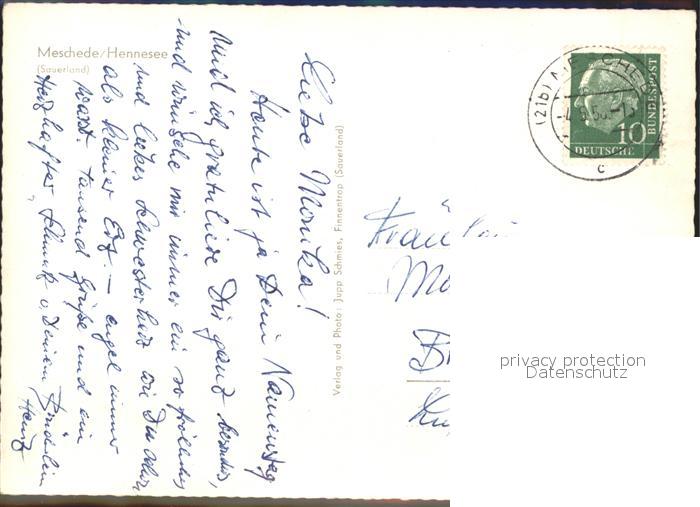 Meschede/Hennesee
(Sauerland)
Liebe Monika!
Heute ist ja Dein Namenstag
und ich gratuliere Dir ganz besonders,
und wünsche mir immer ein so fröhliches
und liebes Schwesterherz wie Du
als kleiner
warst. Tausend Grüße und ein
herzhafter Schmatz v. Deinem Brüderlein
Heinz
Verlag und Photo: Jupp Schmies, Finnentrop (Sauerland)
(21b) MESCHEDE
c
10
DEUTSCHE
BUNDESPOST
Fräulein
privacy protection
Datenschutz